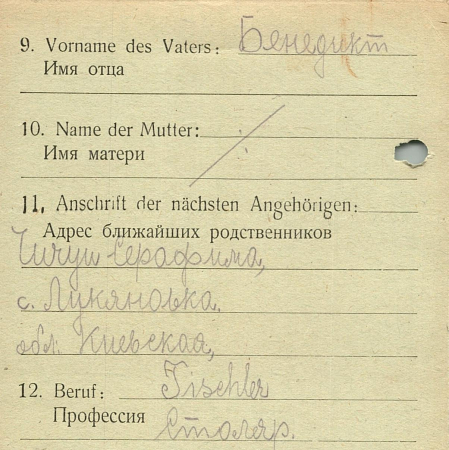 9. Vorname des Vaters: Бенедикт
Имя отца
10. Name der Mutter:
Имя матери
11. Anschrift der nächsten Angehörigen:
Адрес ближайших родственников
Серафима,
с. Лукяновка,
обл. Киевская,
12. Beruf: Tischler
Профессия Столяр.